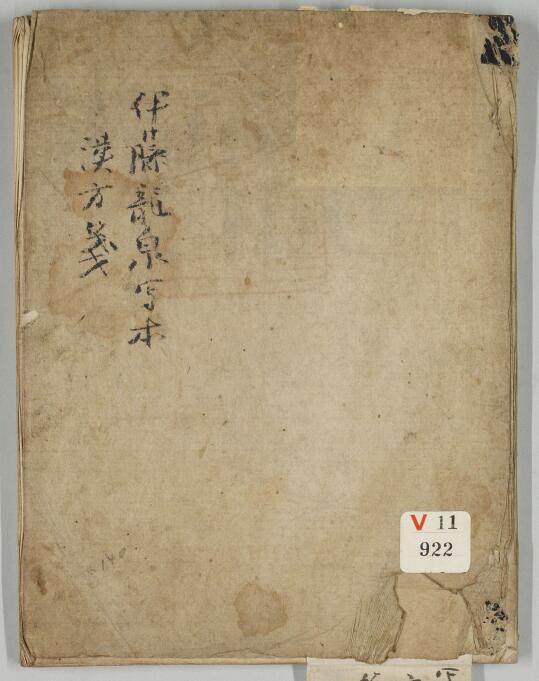 伊藤龍泉写本
漢方箋
V 11
922